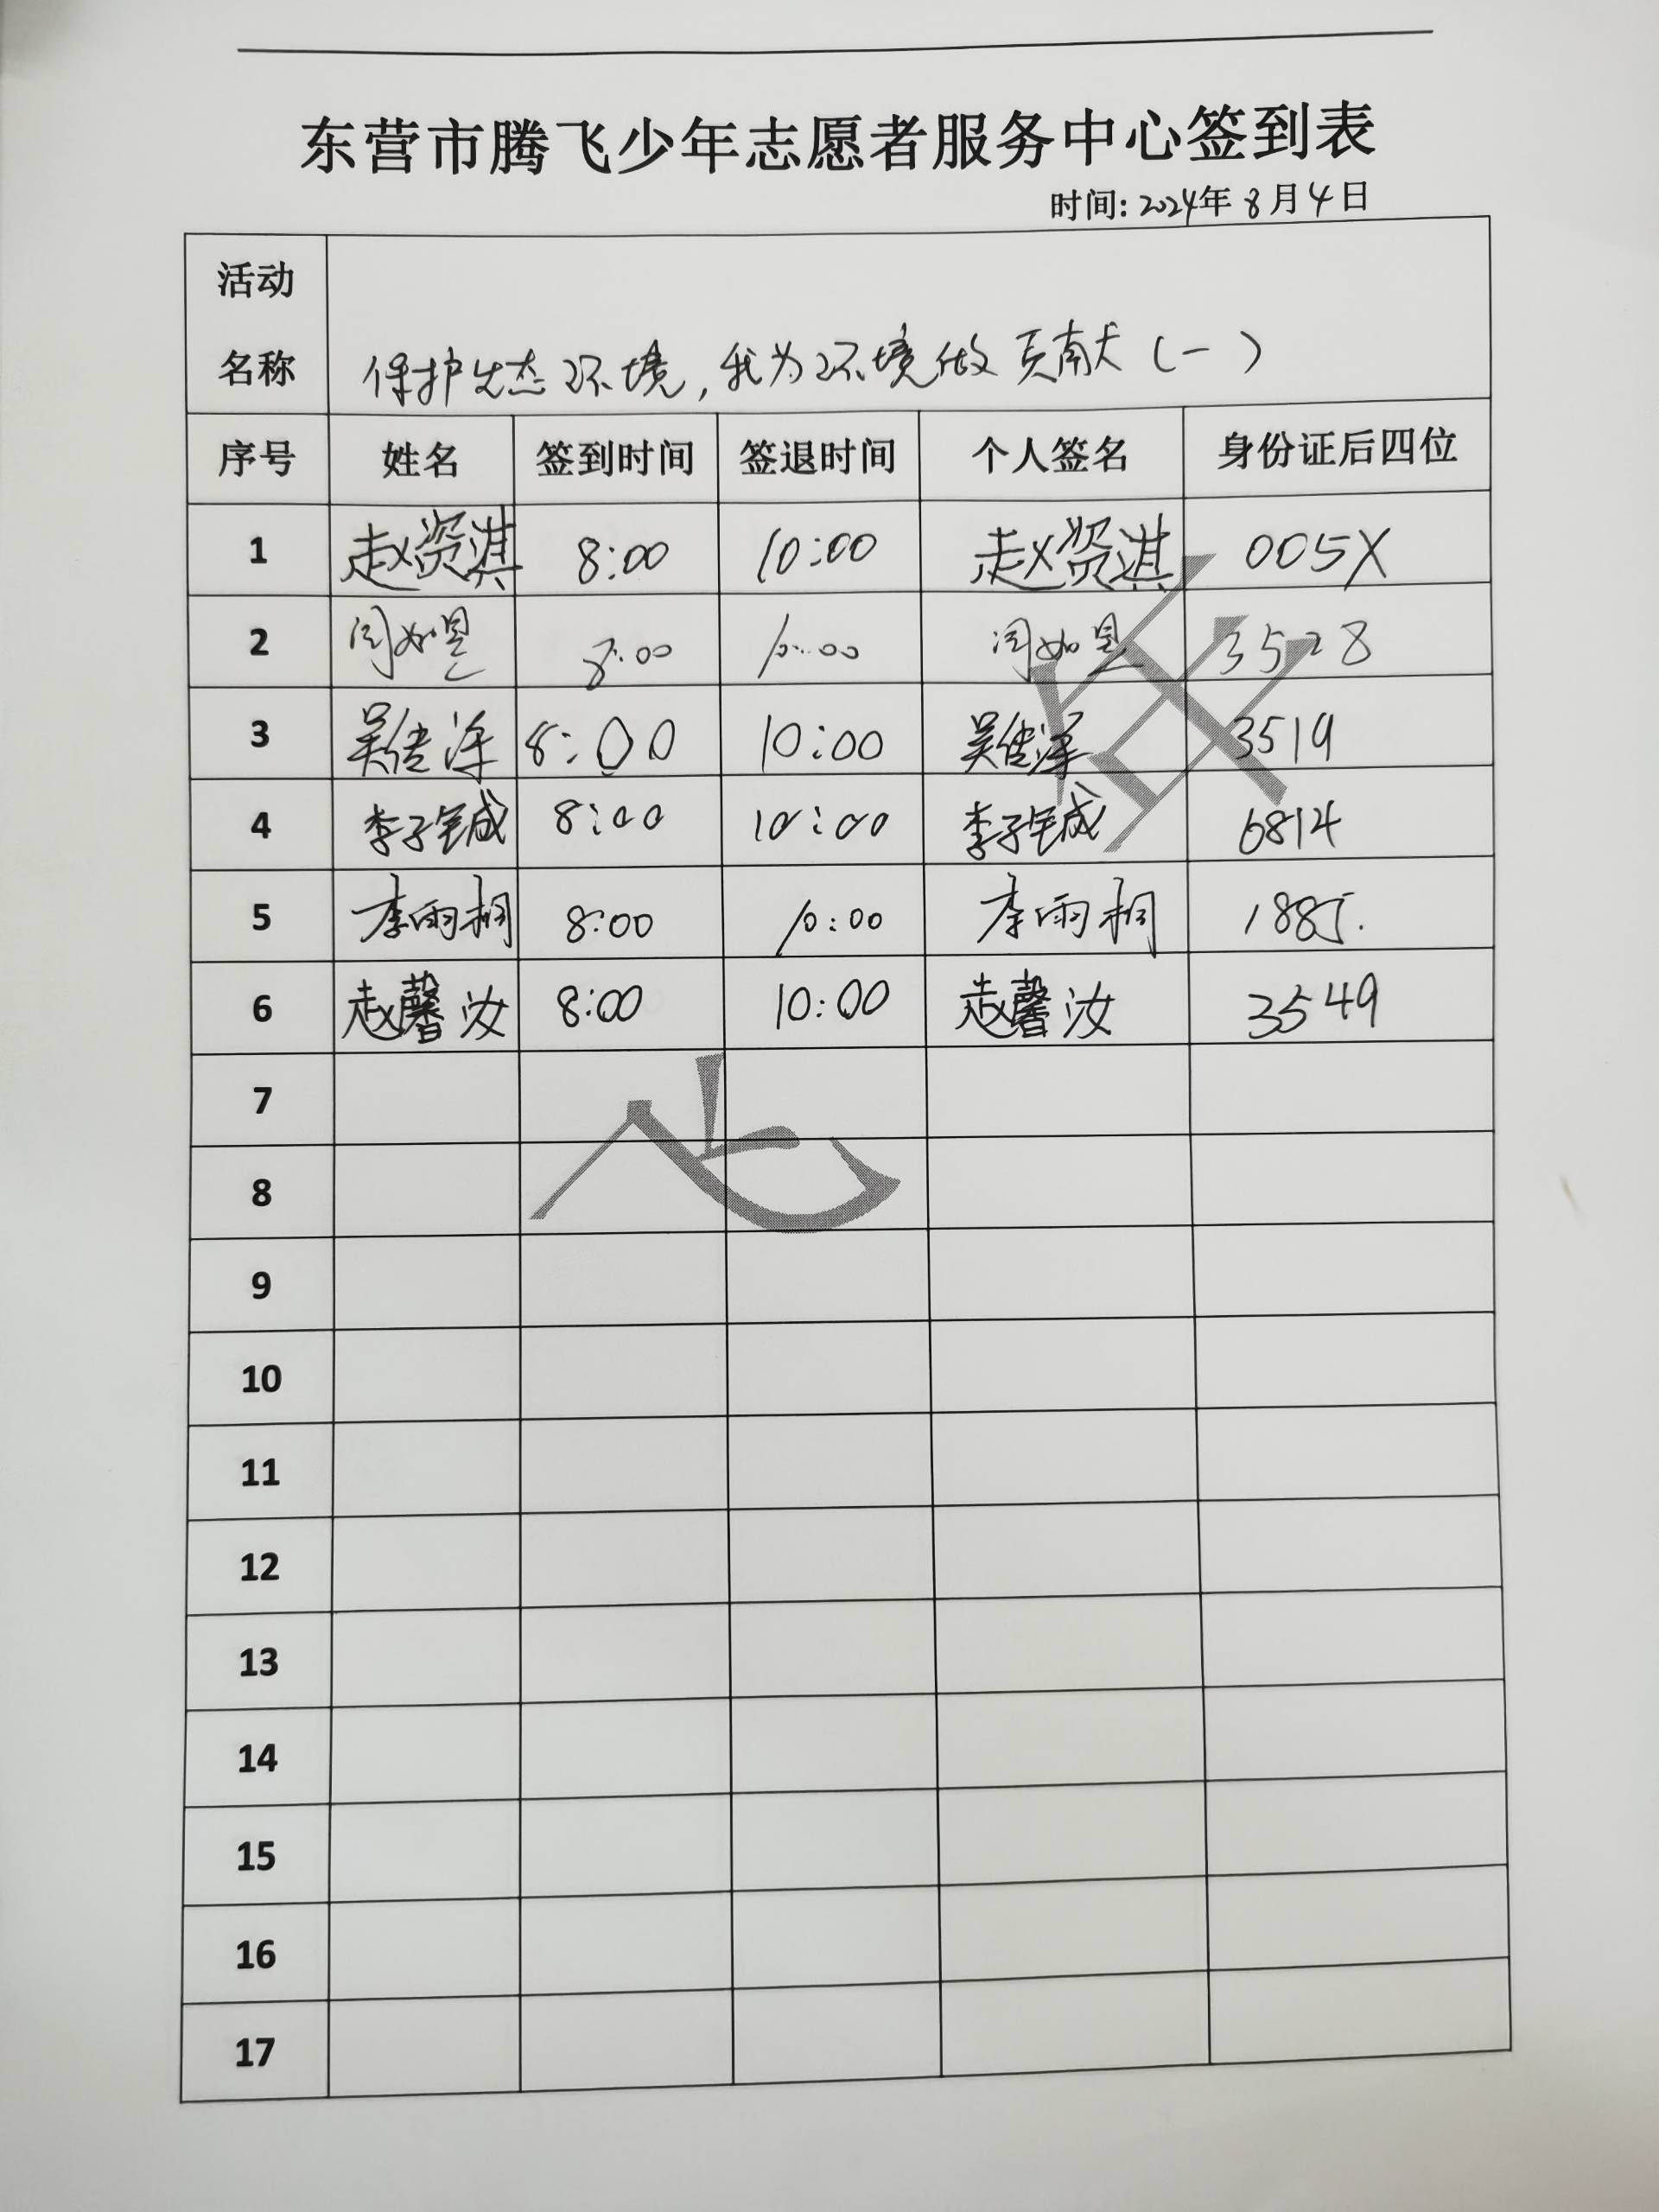 东营市腾飞少年志愿者服务中心签到表
时间: 2024年 8月 4日
活动名称 保护生态环境,我为环境做贡献(一)
序号 姓名 签到时间 签退时间 个人签名 身份证后四位
1 赵资淇 8:00 10:00 赵资淇 005X
2 闫如 8:00 10:00 闫如 3528
3 吴 8:00 10:00 吴 3519
4 李子铖 8:00 10:00 李子铖 6814
5 李雨桐 8:00 10:00 李雨桐 1885.
6 赵馨汝 8:00 10:00 赵馨汝 3549
7
8
9
10
11
12
13
14
15
16
17